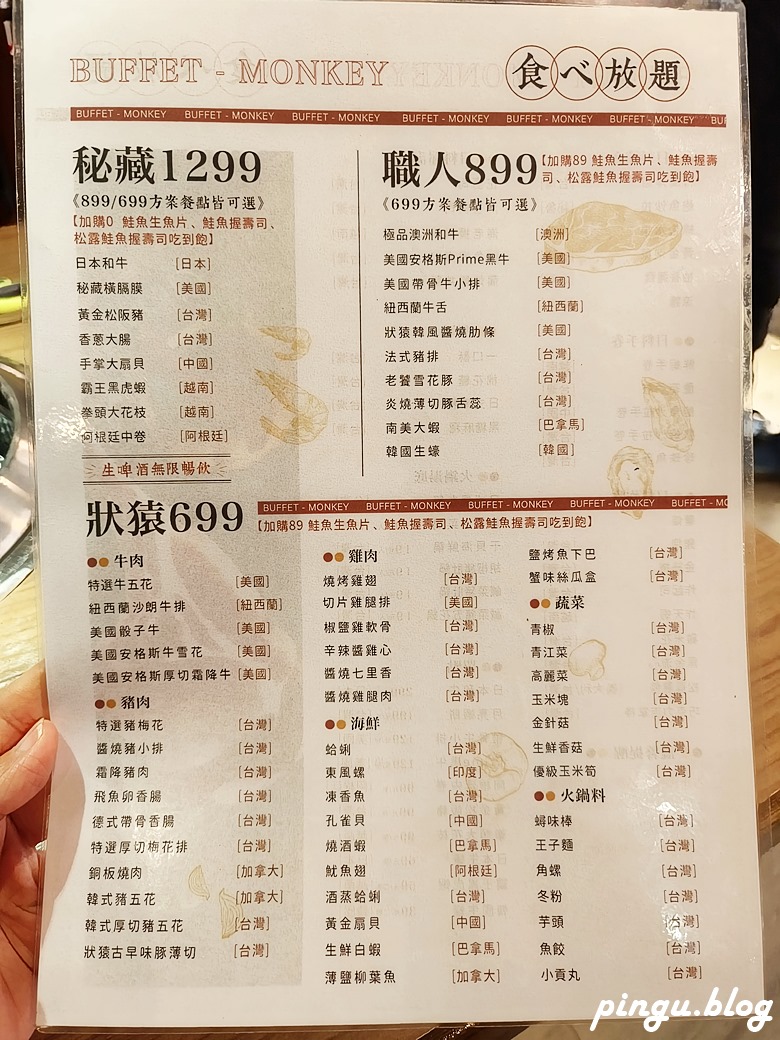 BUFFET - MONKEY
食べ放題
BUFFET - MONKEY BUFFET - MONKEY BUFFET - MONKEY BUFFET - MONKEY BUFFET - MONKEY BUFFET - MONKEY BU
秘藏1299
《899/699方案餐點皆可選》
【加購0 鮭魚生魚片、鮭魚握壽司、
松露鮭魚握壽司吃到飽】
日本和牛 [日本]
秘藏橫膈膜 [美國]
黃金松阪豬 [台灣]
香蔥大腸 [台灣]
手掌大扇貝 [中國]
霸王黑虎蝦 [越南]
拳頭大花枝 [越南]
阿根廷中卷 [阿根廷]
生啤酒無限暢飲
職人899
【加購89 鮭魚生魚片、鮭魚握壽
司、松露鮭魚握壽司吃到飽】
《699方案餐點皆可選》
極品澳洲和牛 [澳洲]
美國安格斯Prime黑牛 [美國]
美國帶骨牛小排 [美國]
紐西蘭牛舌 [紐西蘭]
狀猿韓風醬燒肋條 [美國]
法式豬排 [台灣]
老饕雪花豚 [台灣]
炎燒薄切豚舌蕊 [台灣]
南美大蝦 [巴拿馬]
韓國生蠔 [韓國]
狀猿699
BUFFET - MONKEY BUFFET - MONKEY BUFFET - MONKEY BUFFET - MONKEY BUFFET - MO
【加購89 鮭魚生魚片、鮭魚握壽司、松露鮭魚握壽司吃到飽】
牛肉
特選牛五花 [美國]
紐西蘭沙朗牛排 [紐西蘭]
美國骰子牛 [美國]
美國安格斯牛雪花 [美國]
美國安格斯厚切霜降牛 [美國]
豬肉
特選豬梅花 [台灣]
醬燒豬小排 [台灣]
霜降豬肉 [台灣]
飛魚卵香腸 [台灣]
德式帶骨香腸 [台灣]
特選厚切梅花排 [台灣]
銅板燒肉 [加拿大]
韓式豬五花 [加拿大]
韓式厚切豬五花 [台灣]
狀猿古早味豚薄切 [台灣]
雞肉
燒烤雞翅 [台灣]
切片雞腿排 [美國]
椒鹽雞軟骨 [台灣]
辛辣醬雞心 [台灣]
醬燒七里香 [台灣]
醬燒雞腿肉 [台灣]
海鮮
蛤蜊 [台灣]
東風螺 [印度]
凍香魚 [台灣]
孔雀貝 [中國]
燒酒蝦 [巴拿馬]
魷魚翅 [阿根廷]
酒蒸蛤蜊 [台灣]
黃金扇貝 [中國]
生鮮白蝦 [巴拿馬]
薄鹽柳葉魚 [加拿大]
鹽烤魚下巴 [台灣]
蟹味絲瓜盒 [台灣]
蔬菜
青椒 [台灣]
青江菜 [台灣]
高麗菜 [台灣]
玉米塊 [台灣]
金針菇 [台灣]
生鮮香菇 [台灣]
優級玉米筍 [台灣]
火鍋料
蟳味棒 [台灣]
王子麵 [台灣]
角螺 [台灣]
冬粉 [台灣]
芋頭 [台灣]
魚餃 [台灣]
小貢丸 [台灣]
pingu.blog